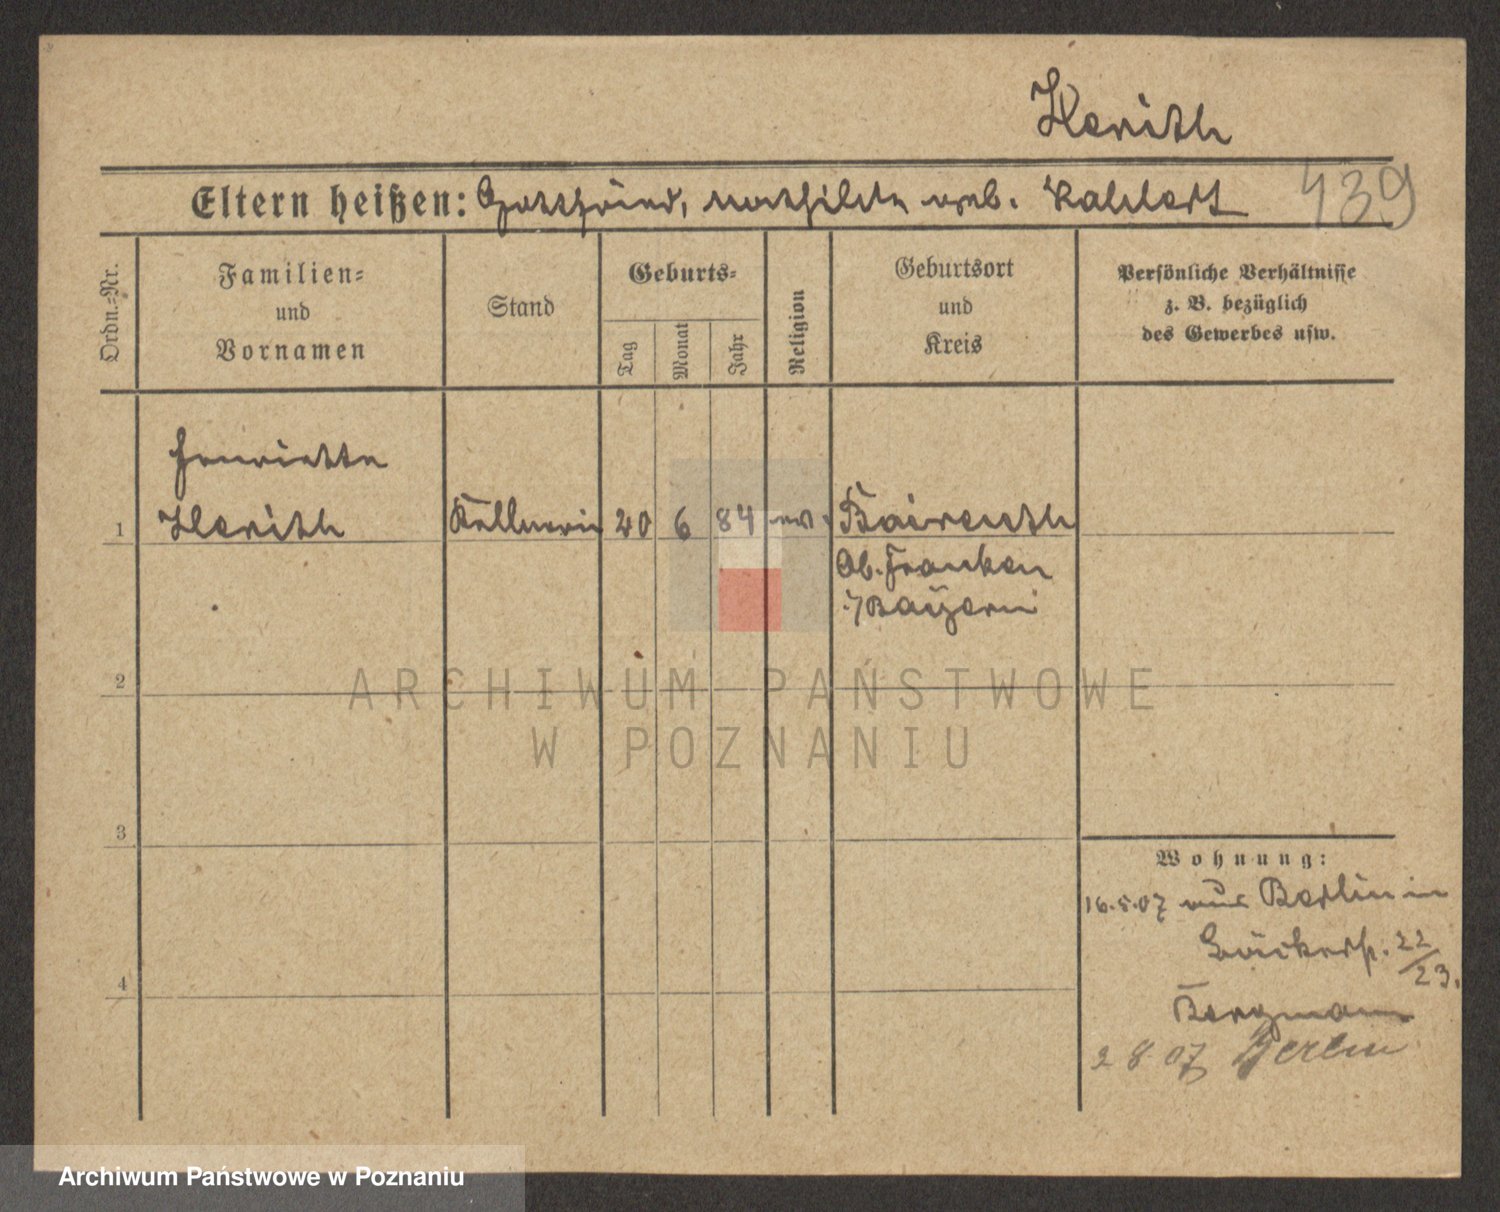 Herith
Eltern heißen: Gottfried, Mathilde geb. 439
Ordn.-Nr.
Familien-
und
Vornamen
Stand
Geburts-
Tag
Monat
Jahr
Religion
Geburtsort
und
Kreis
Persönliche Verhältnisse
z. B. bezüglich
des Gewerbes usw.
Henriette
1 Herith Kellnerin 20 6 84 ev. Baireuth
Ob. Franken
i/Bayern
2
3
4
Wohnung:
16.5.07 aus Berlin in
Bäckerstr. 22/23.
Bergmann
2 8 07 Berlin
ARCHIWUM PAŃSTWOWE
W POZNANIU
Archiwum Państwowe w Poznaniu